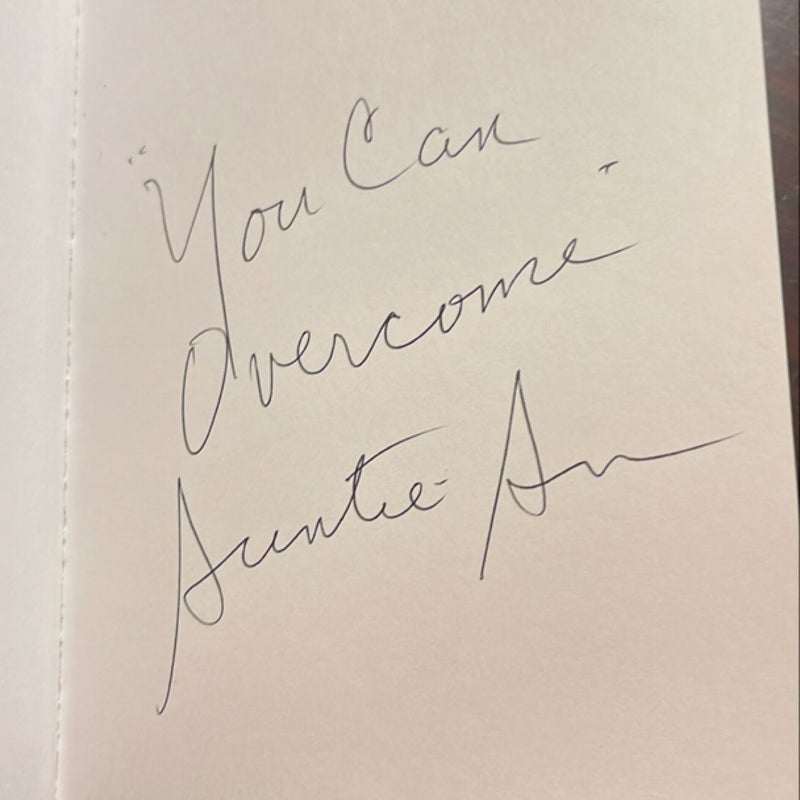 "You Can
Overcome"
Auntie An